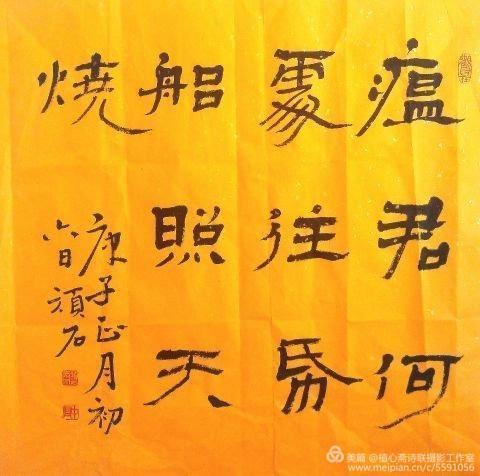 瘟君何
處往帋
船照天
燒
庚子正月初
六日頑石
美篇 @植心斋诗联摄影工作室
www.meipian.cn/c/5591056